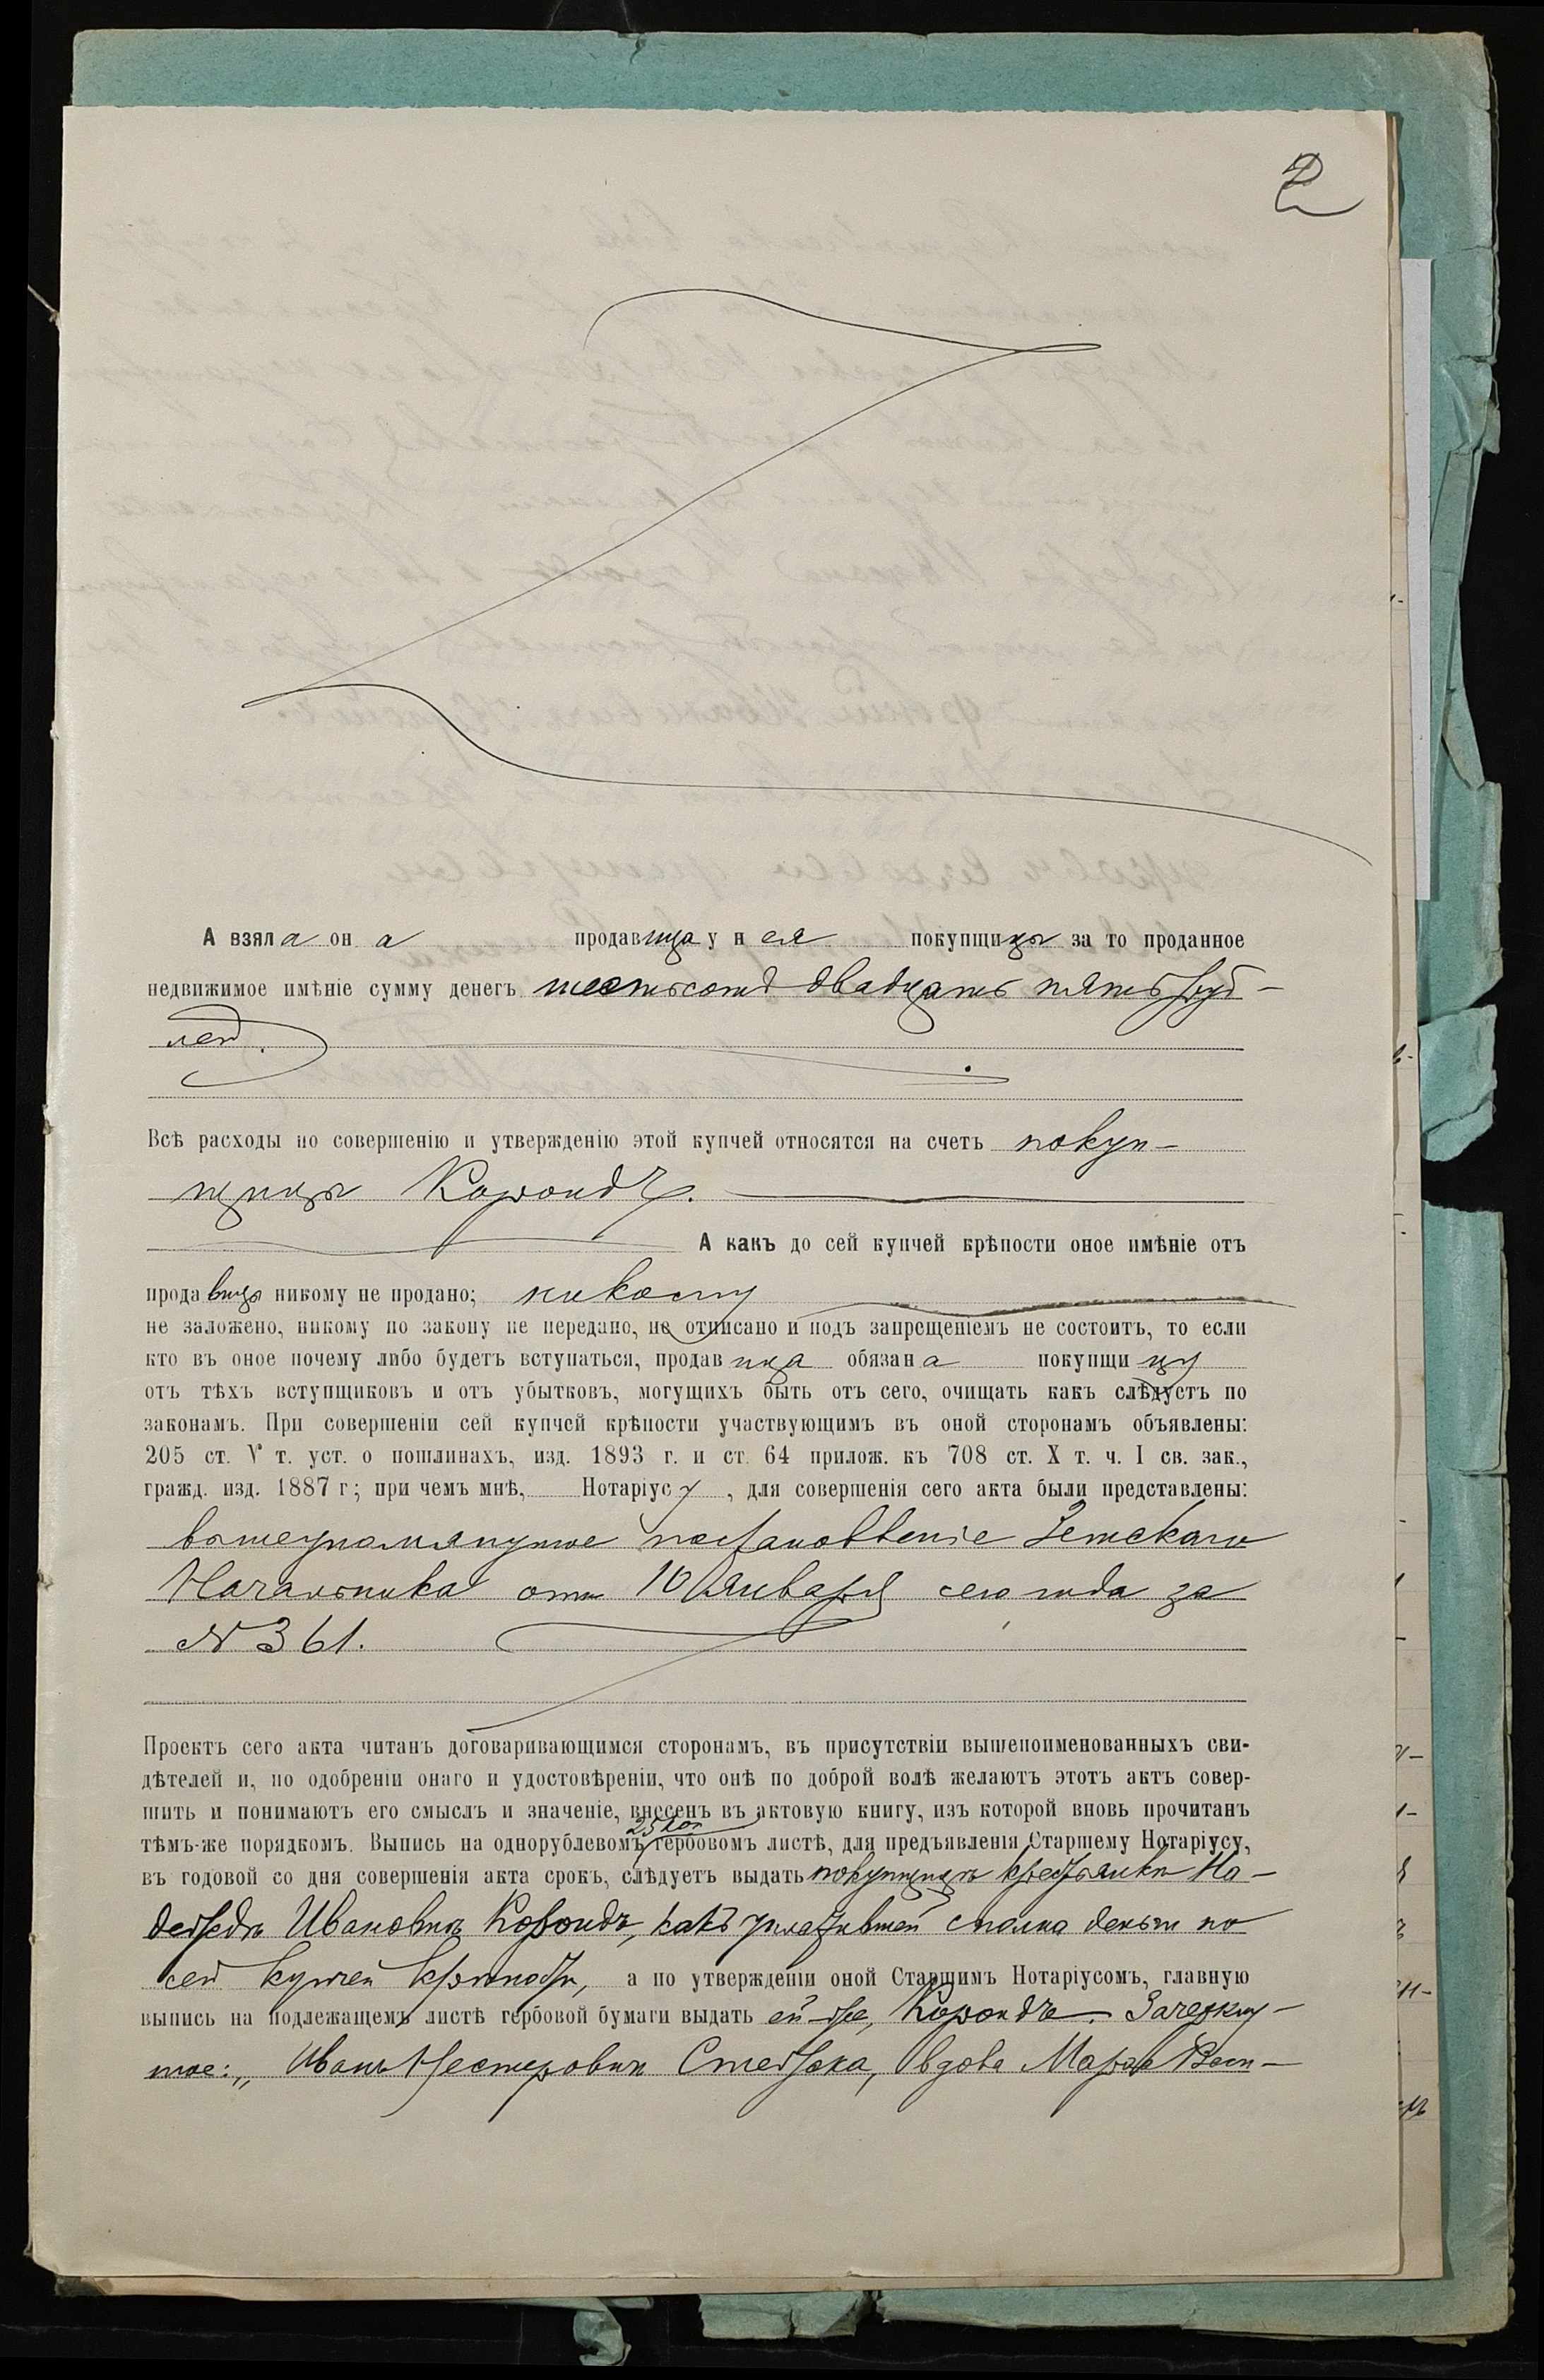 2
А взяла она продавица у нея покупщицы за то проданное
недвижимое имѣніе сумму денегъ шестьсотъ двадцать пять руб-
лей.
Всѣ расходы по совершенію и утвержденію этой купчей относятся на счетъ покуп-
щицы
А какъ до сей купчей крѣпости оное имѣніе отъ
продавицы никому не продано; никому
не заложено, никому по закону не передано, не отписано и подъ запрещеніемъ не состоитъ, то если
кто въ оное почему либо будетъ вступаться, продавица обязана покупщицу
отъ тѣхъ вступщиковъ и отъ убытковъ, могущихъ быть отъ сего, очищать какъ слѣдуетъ по
законамъ. При совершеніи сей купчей крѣпости участвующимъ въ оной сторонамъ объявлены:
205 ст. V т. уст. о пошлинахъ, изд. 1893 г. и ст. 64 прилож. къ 708 ст. X т. ч. I св. зак.,
гражд. изд. 1887 г; при чемъ мнѣ, Нотаріусу, для совершенія сего акта были представлены:
вышеупомянутое постановленіе Земскаго
Начальника отъ 10 Января сего года за
№ 361.
Проектъ сего акта читанъ договаривающимся сторонамъ, въ присутствіи вышепоименованныхъ сви-
дѣтелей и, по одобреніи онаго и удостовѣреніи, что онѣ по доброй волѣ желаютъ этотъ актъ совер-
шить и понимаютъ его смыслъ и значеніе, внесенъ въ актовую книгу, изъ которой вновь прочитанъ
25 коп
тѣмъ-же порядкомъ. Выпись на однорублевомъ гербовомъ листѣ, для предъявленія Старшему Нотаріусу,
въ годовой со дня совершенія акта срокъ, слѣдуетъ выдать покупщицѣ крестьянкѣ На-
деждѣ Ивановнѣ какъ уплатившей сполна деньги по
сей купчей крѣпости, а по утвержденіи оной Старшимъ Нотаріусомъ, главную
выпись на подлежащемъ листѣ гербовой бумаги выдать ей-же, Зачеркну-
тое: „Иванъ Нестеровичъ вдова